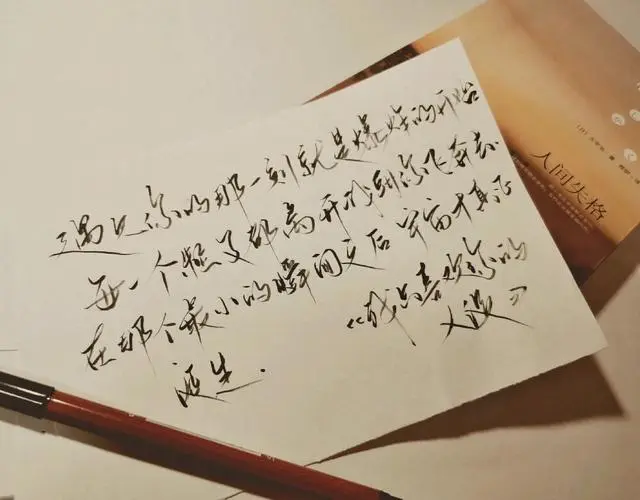 遇见你的那一刻就是爆炸的开始
每一个粒子都离开我到你飞奔去
在那个最小的瞬间之后 宇宙才真正
诞生.
《我只喜欢你的
人设》
人间失格